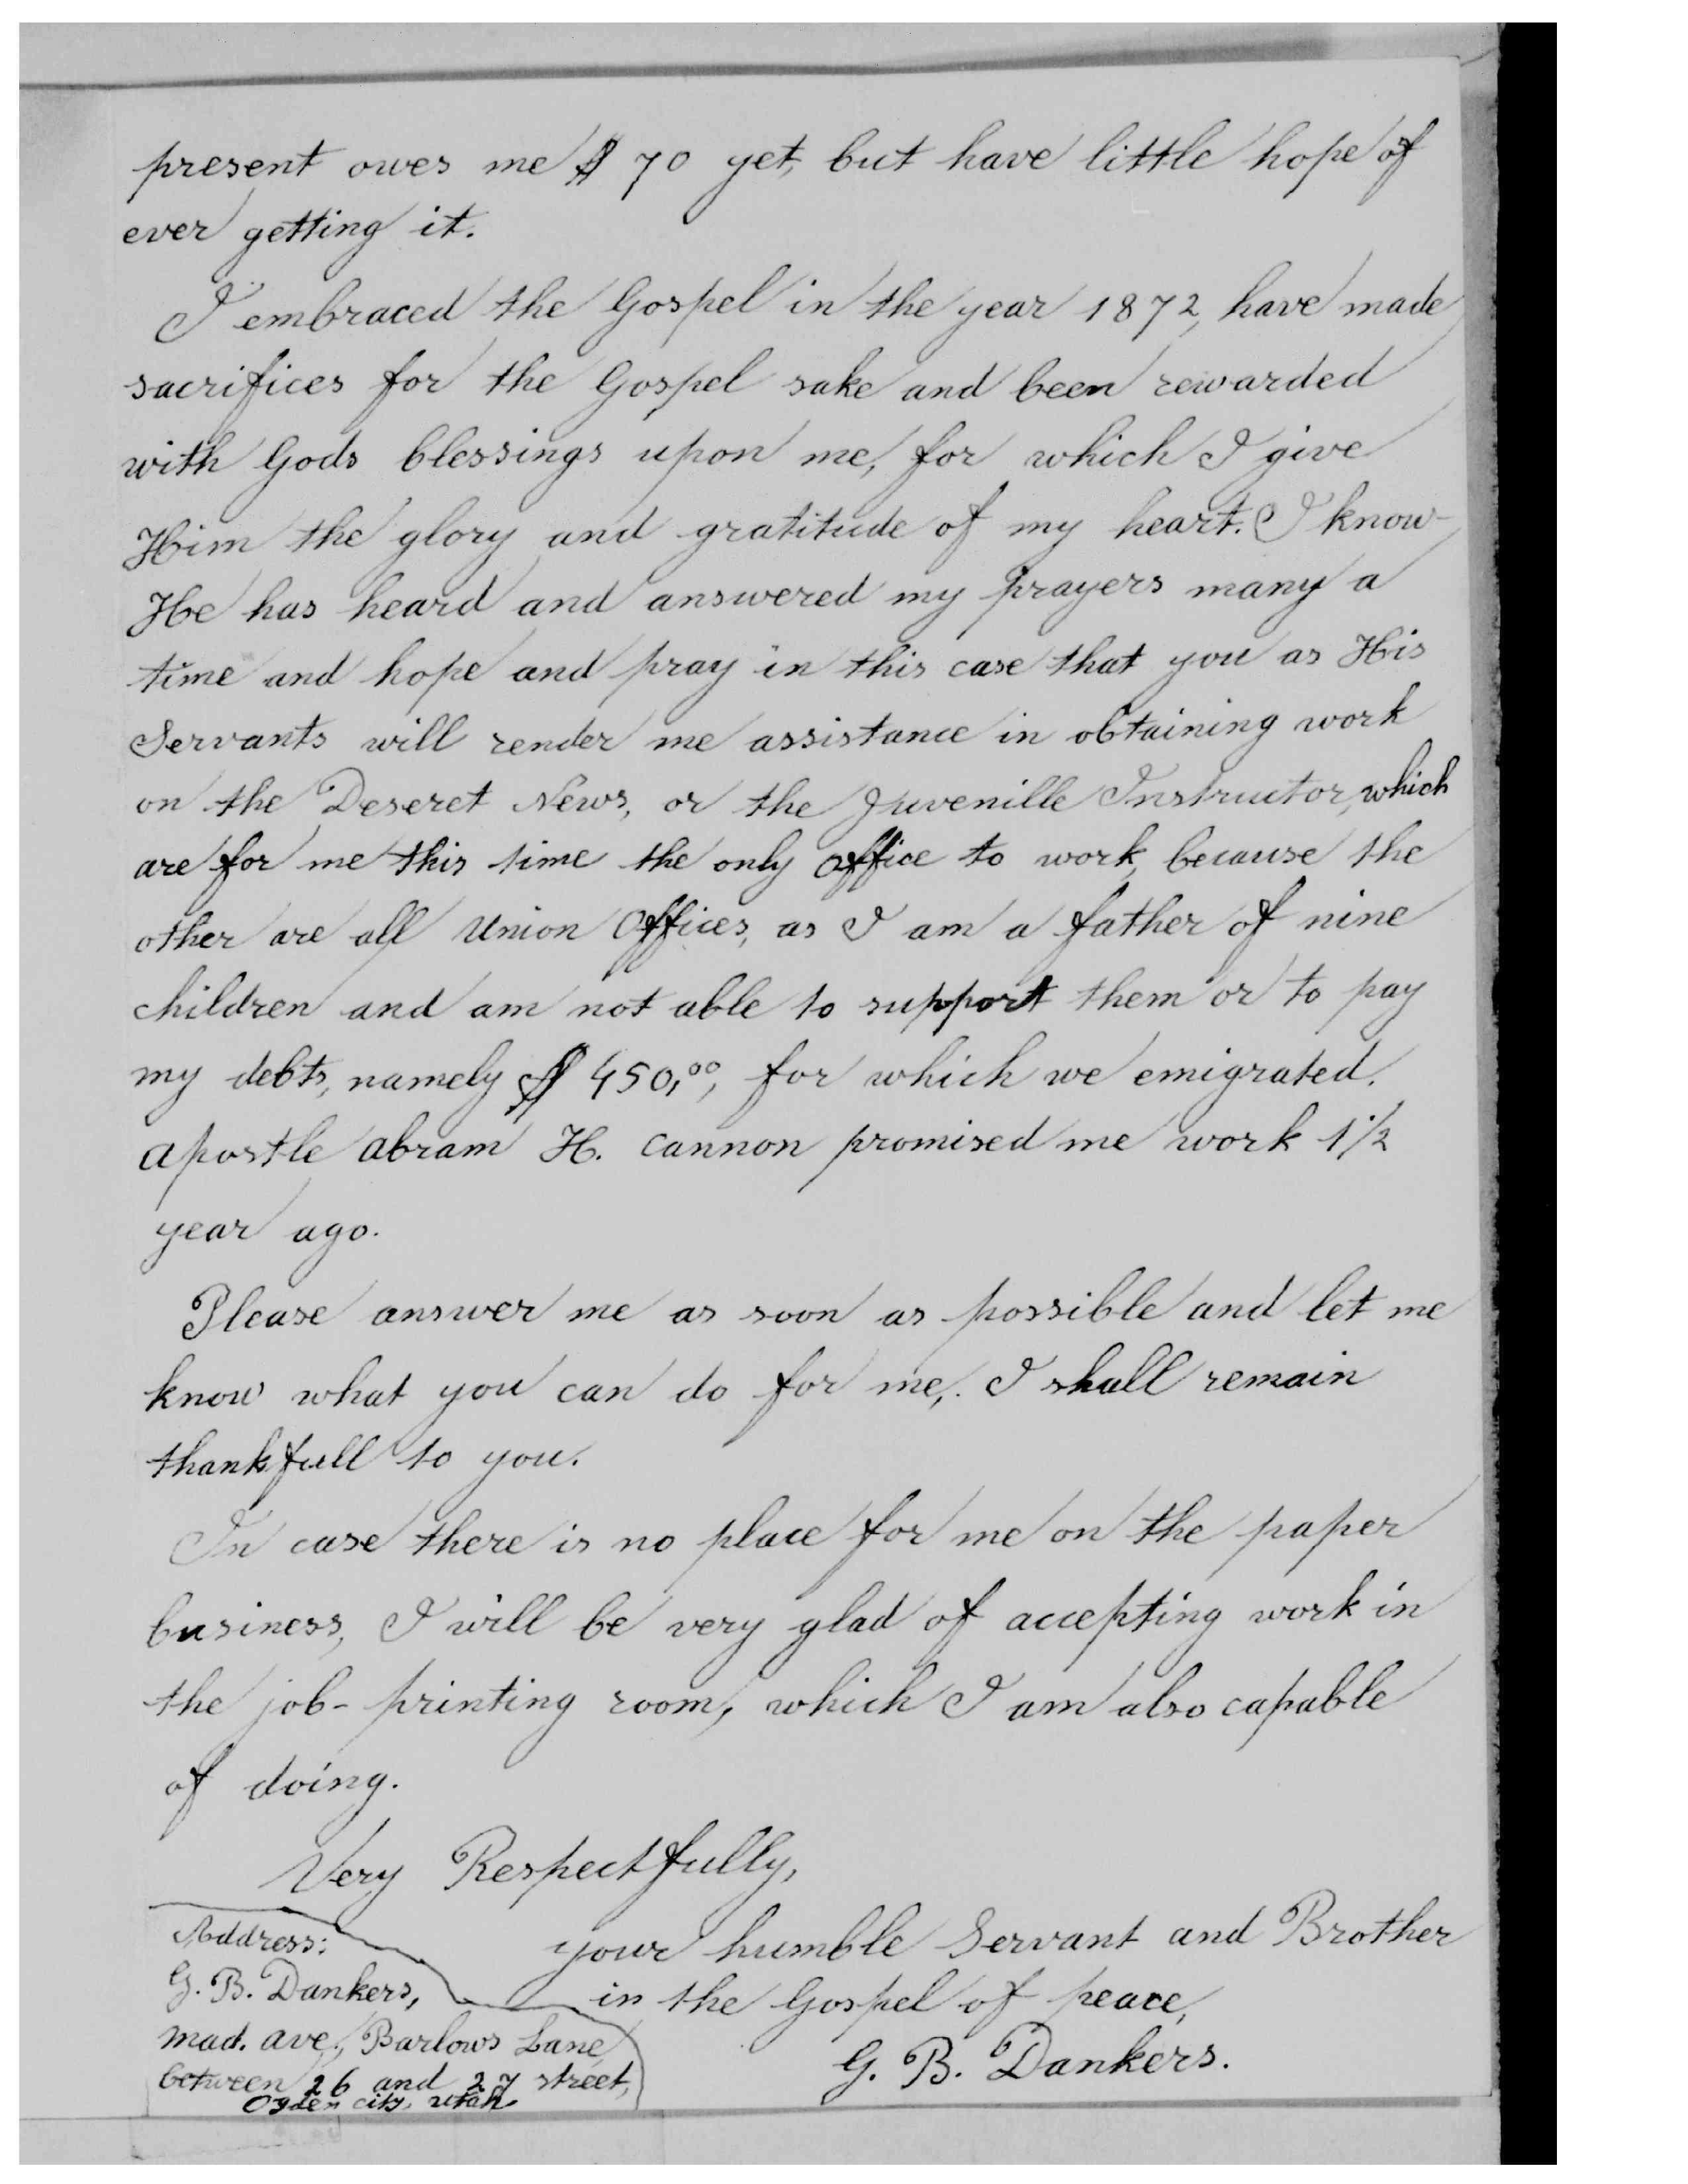 present owes me $ 70 yet, but have little hope of
ever getting it.
I embraced the Gospel in the year 1872, have made
sacrifices for the Gospel sake and been rewarded
with Gods blessings upon me, for which I give
Him the glory and gratitude of my heart. I know
He has heard and answered my prayers many a
time and hope and pray in this case that you as His
Servants will render me assistance in obtaining work
on the Deseret News, or the Juvenille Instructor, which
are for me this time the only office to work, because the
other are all Union Offices, as I am a father of nine
children and am not able to support them or to pay
my debts, namely $ 450,00, for which we emigrated.
Apostle Abram H. Cannon promised me work 1 1/2
year ago.
Please answer me as soon as possible and let me
know what you can do for me, I shall remain
thankfull to you.
In case there is no place for me on the paper
business, I will be very glad of accepting work in
the job-printing room, which I am also capable
of doing.
Very Respectfully,
your humble Servant and Brother
in the Gospel of peace,
G. B. Dankers.
Address:
G. B. Dankers,
Mad. Ave., Barlows Lane
between 26 and 27 street,
Ogden city, Utah.